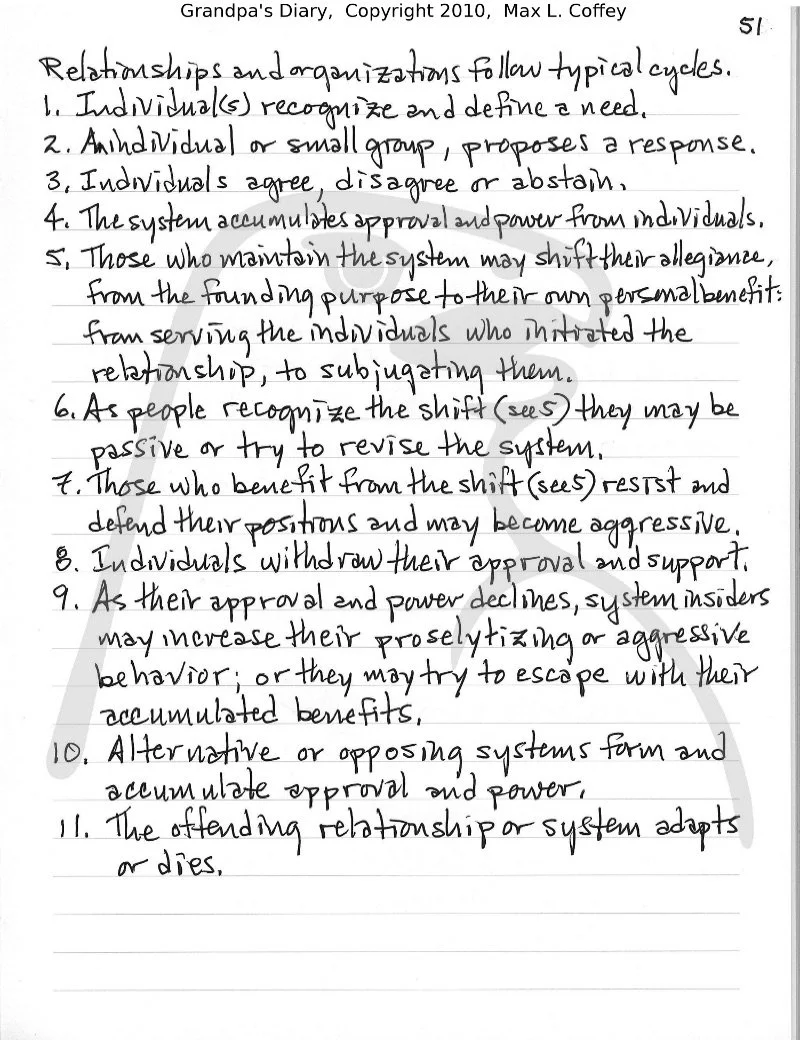 Grandpa's Diary, Copyright 2010, Max L. Coffey
51
Relationships and organizations follow typical cycles.
1. Individual(s) recognize and define a need.
2. An individual or small group, proposes a response.
3. Individuals agree, disagree or abstain.
4. The system accumulates approval and power from individuals.
5. Those who maintain the system may shift their allegiance,
from the founding purpose to their own personal benefit:
from serving the individuals who initiated the
relationship, to subjugating them.
6. As people recognize the shift (see 5) they may be
passive or try to revise the system.
7. Those who benefit from the shift (see 5) resist and
defend their positions and may become aggressive.
8. Individuals withdraw their approval and support.
9. As their approval and power declines, system insiders
may increase their proselytizing or aggressive
behavior; or they may try to escape with their
accumulated benefits.
10. Alternative or opposing systems form and
accumulate approval and power.
11. The offending relationship or system adapts
or dies.